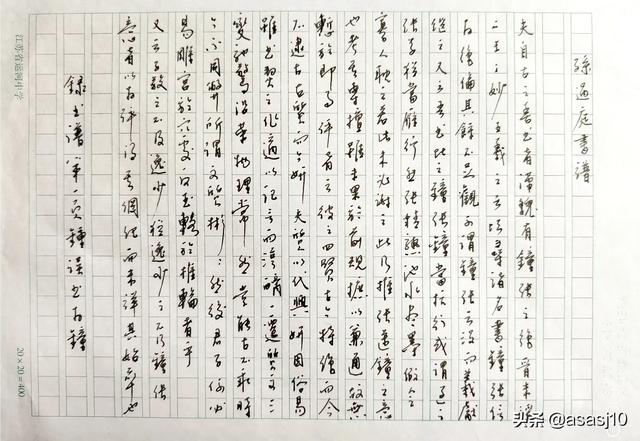 孫過庭書譜
夫自古之善書者漢魏有鍾張之絕晉末稱
二王之妙王羲之云頃尋諸名書鍾張信
為絕倫其餘不足觀可謂鍾張云沒而羲獻
繼之又云吾書比之鍾張鍾當抗行或謂過之
張草猶當雁行然張精熟池水盡墨假令
寡人耽之若此未必謝之此乃推張邁鍾之意
也考其專擅雖未果於前規摭以兼通故無
慙於即事評者云彼之四賢古今特絕而今
不逮古古質而今妍夫質以代興妍因俗易
雖書契之作適以記言而淳醨一遷質文三
變馳騖沿革物理常然貴能古不乖時
今不同弊所謂文質彬彬然後君子何必
易雕宮於穴處反玉輅於椎輪者乎
又云子敬之不及逸少猶逸少之不及鍾張
意者以為評得其綱紀而未詳其始卒也
錄書譜第一頁 鍾誤書為鐘
江苏省运河中学
20×20=400
头条 @asasj10